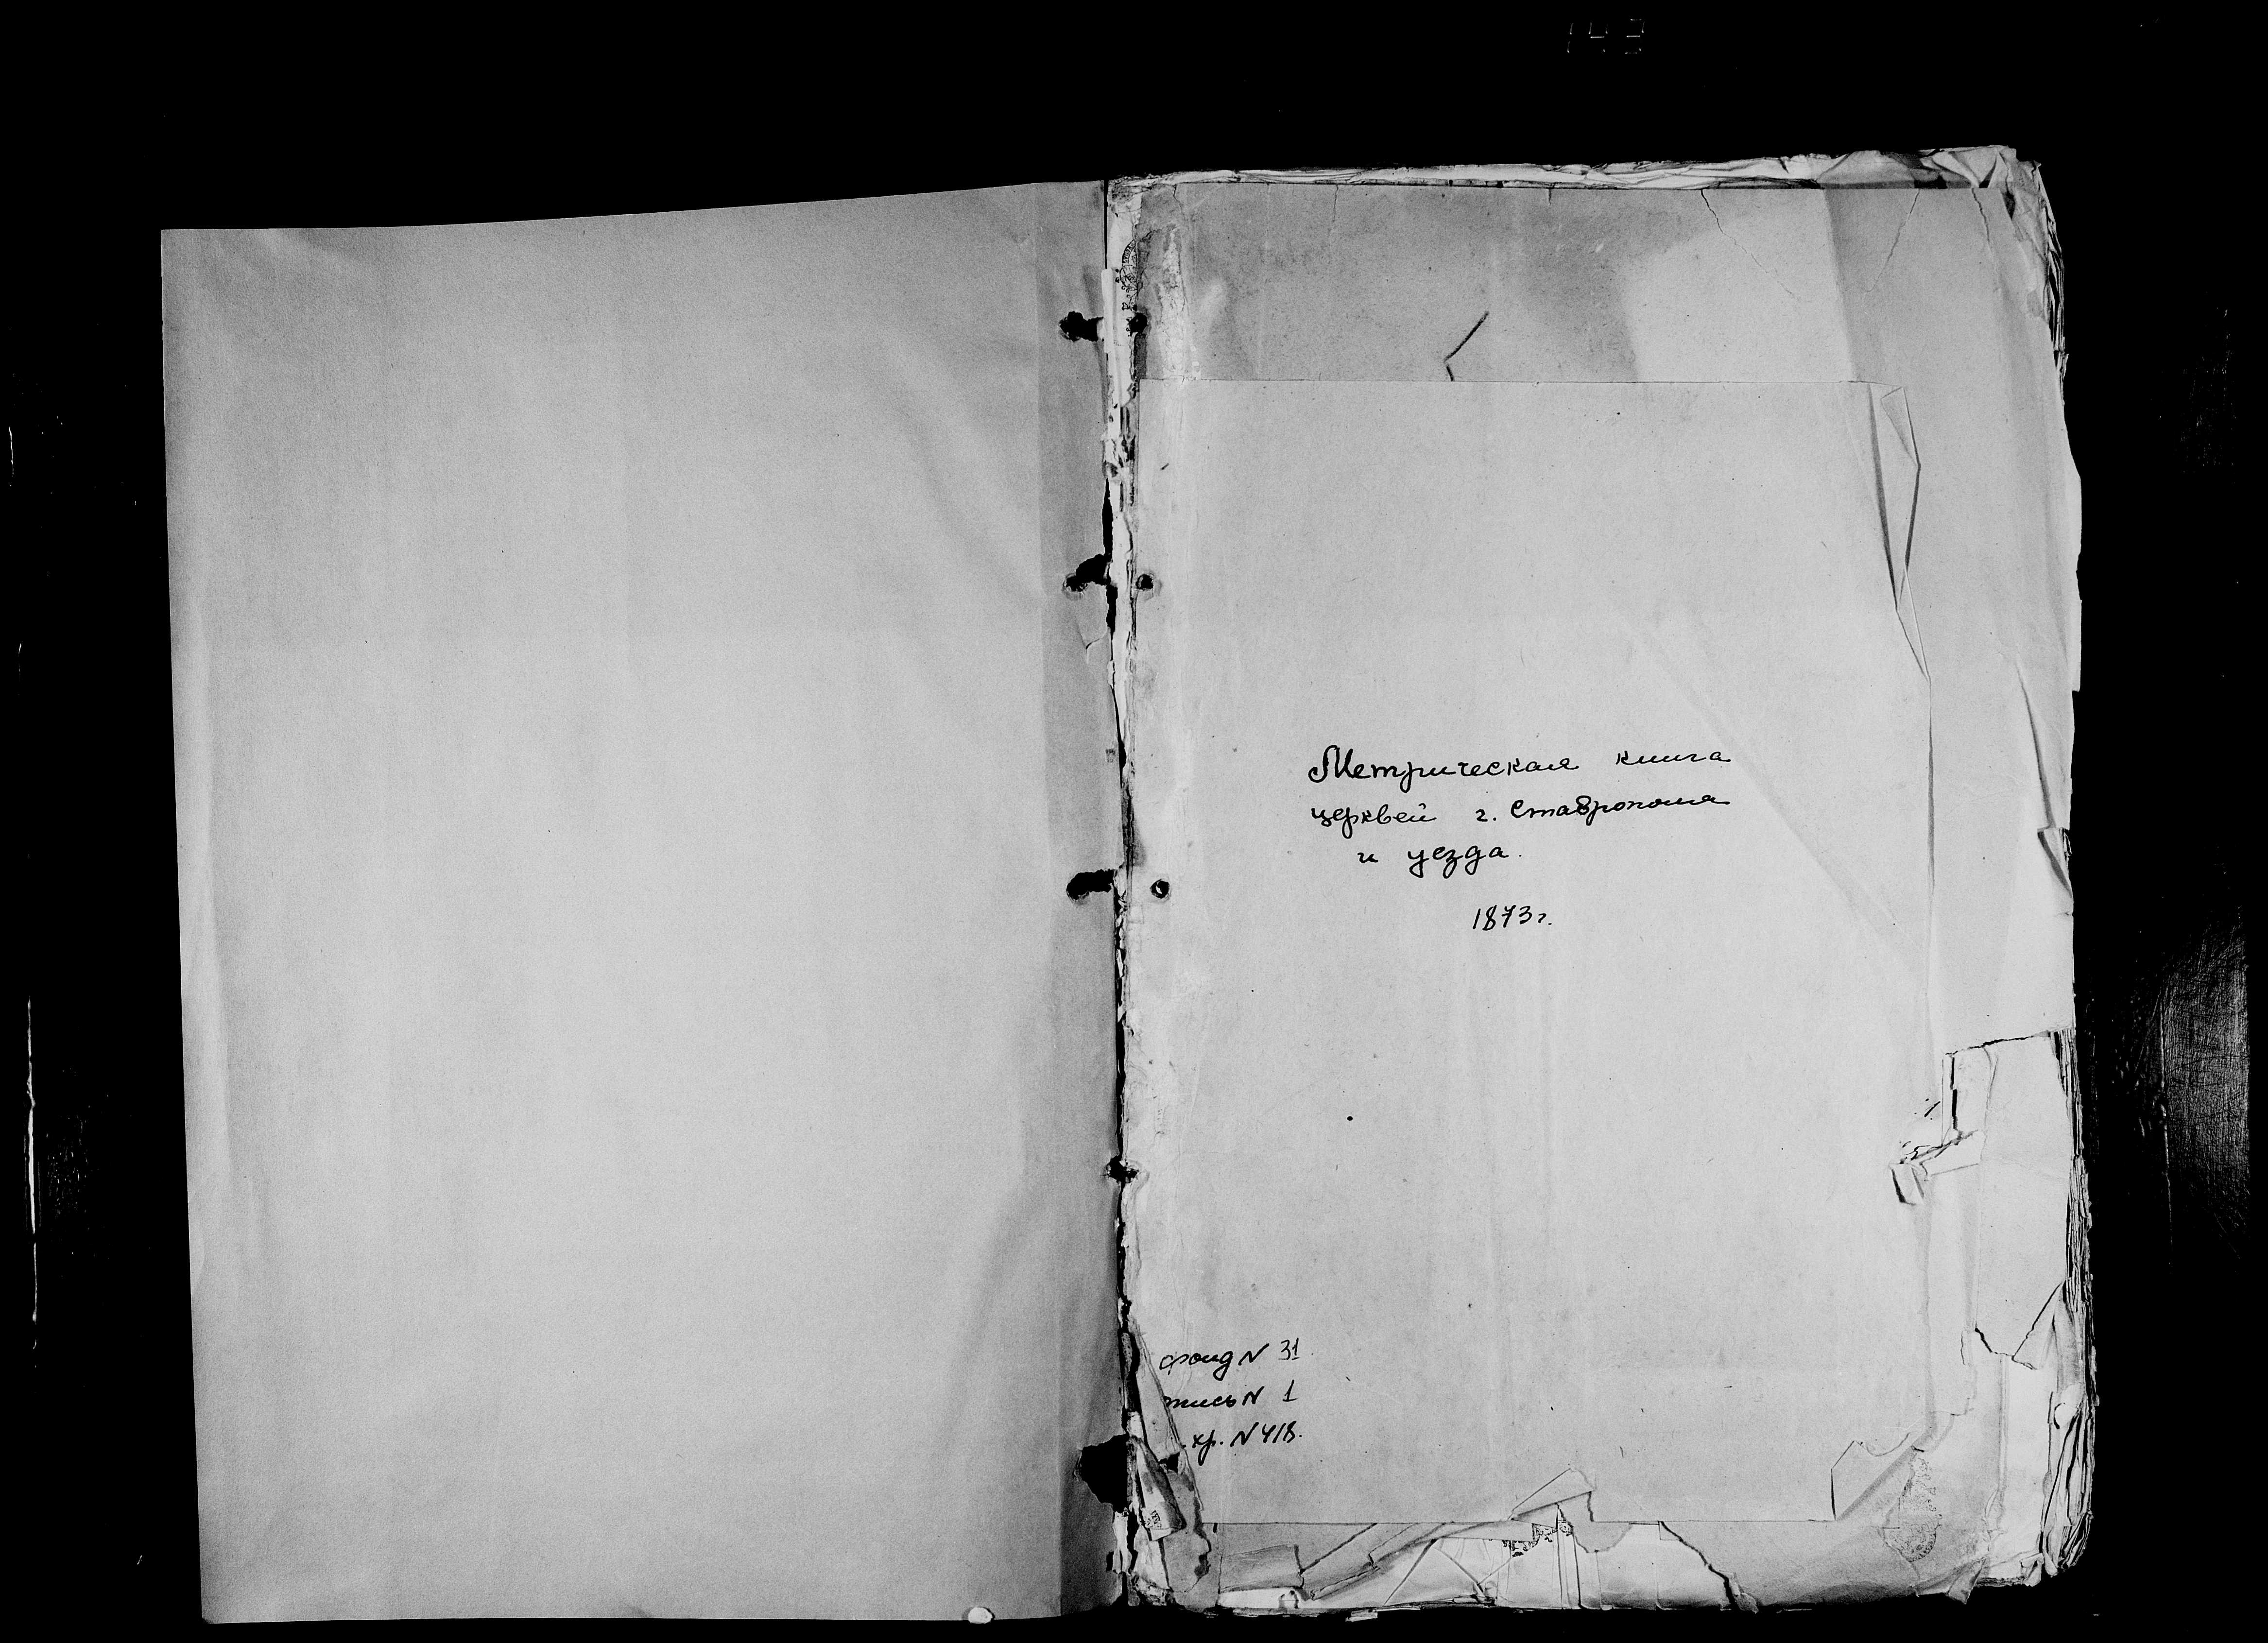 Метрическая книга
церквей г. Ставрополя
и уезда.
1873г.
фонд N 31
пись N 1
.хр. N 418.